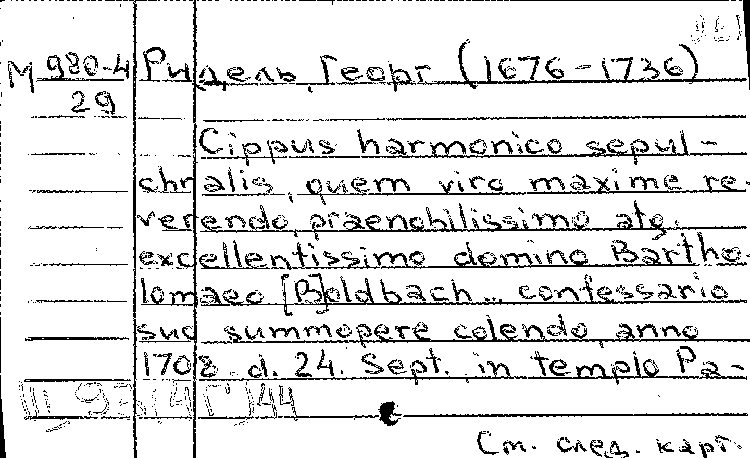 М 980-4 Ридель, Георг (1676-1736)
29
Cippus harmonico sepul-
chralis, quem viro maxime re-
verendo, praenobilissimo atq.
excellentissimo domino Bartho-
lomaeo [B]oldbach... confessario
suo summopere colendo, anno
1708. d. 24. Sept. in templo Pa-
См. след. карт.